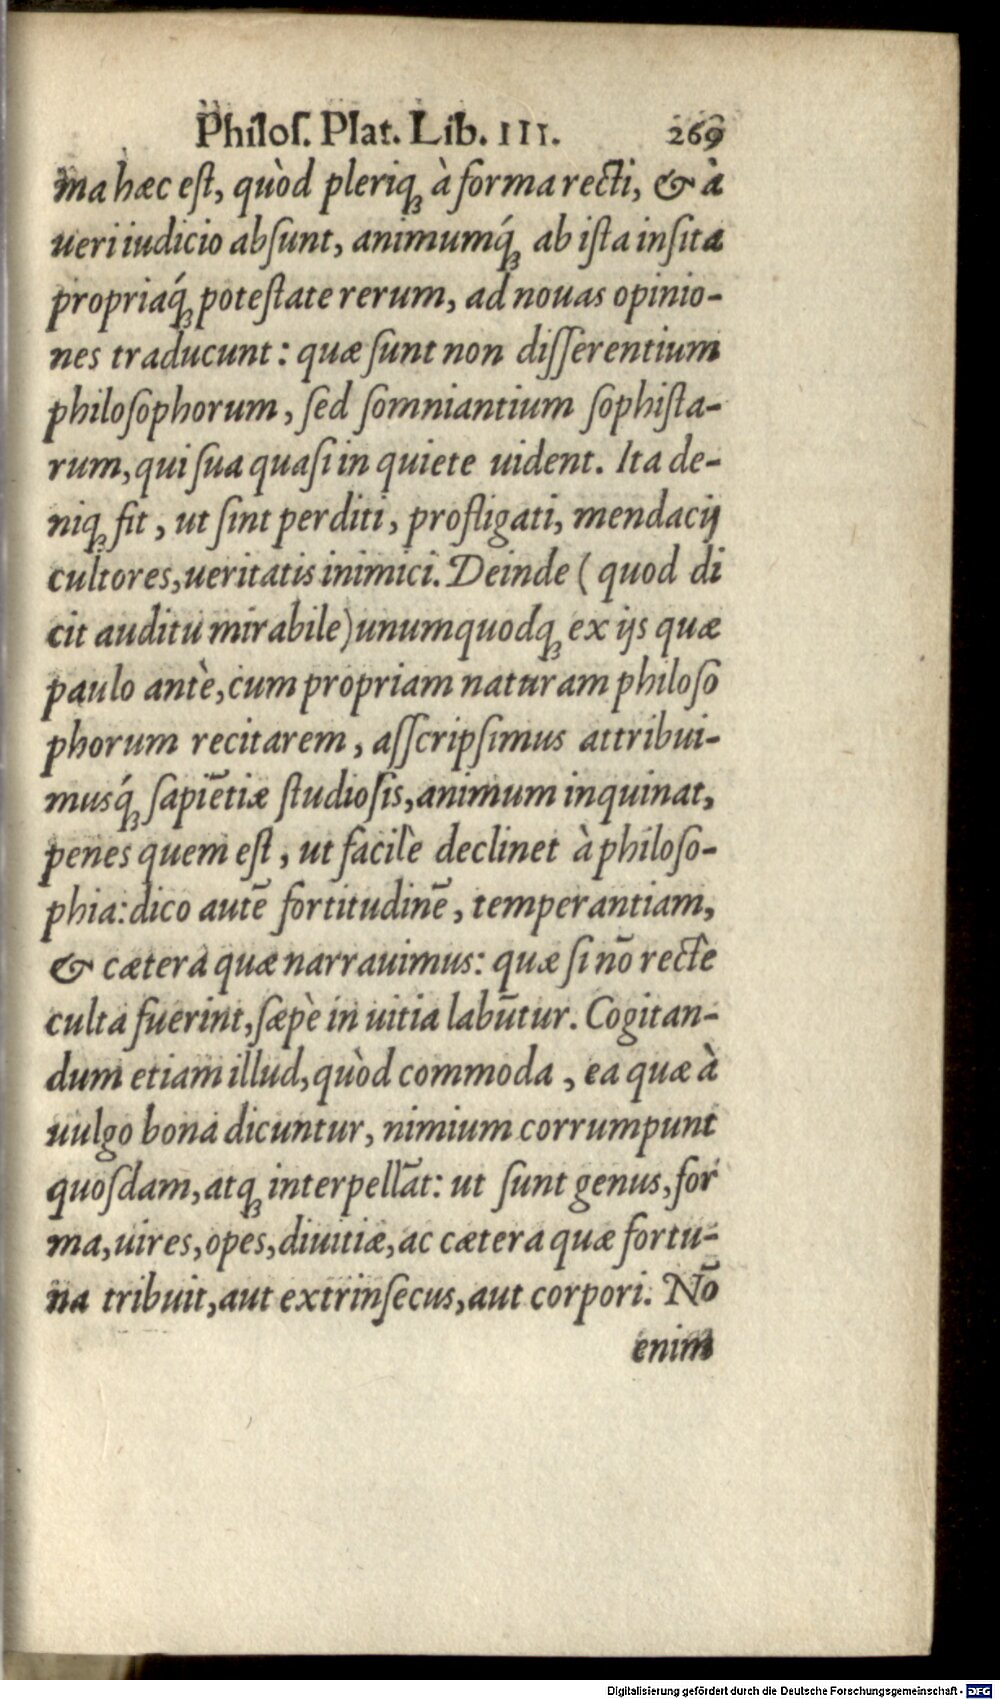 Philoſ. Plat. Lib. III. 269
ma hæc eſt, quòd pleriqꝫ à forma recti, & à
ueri iudicio abſunt, animumq́ꝫ ab iſta inſita
propriaq́ꝫ poteſtate rerum, ad nouas opinio-
nes traducunt: quæ ſunt non diſſerentium
philoſophorum, ſed ſomniantium ſophiſta-
rum, qui ſua quaſi in quiete uident. Ita de-
niqꝫ fit, ut ſint perditi, profligati, mendacij
cultores, ueritatis inimici. Deinde (quod di
cit auditu mirabile) unumquodqꝫ ex ijs quæ
paulo antè, cum propriam naturam philoſo
phorum recitarem, aſſcripſimus attribui-
musq́ꝫ ſapiẽtiæ ſtudioſis, animum inquinat,
penes quem eſt, ut facilè declinet à philoſo-
phia: dico autẽ fortitudinẽ, temperantiam,
& cætera quæ narrauimus: quæ ſi nõ recte
culta fuerint, ſæpè in uitia labũtur. Cogitan-
dum etiam illud, quòd commoda, ea quæ à
uulgo bona dicuntur, nimium corrumpunt
quoſdam, atqꝫ interpellãt: ut ſunt genus, for
ma, uires, opes, diuitiæ, ac cætera quæ fortu-
na tribuit, aut extrinſecus, aut corpori. Nõ
enim
Digitalisierung gefördert durch die Deutsche Forschungsgemeinschaft - DFG